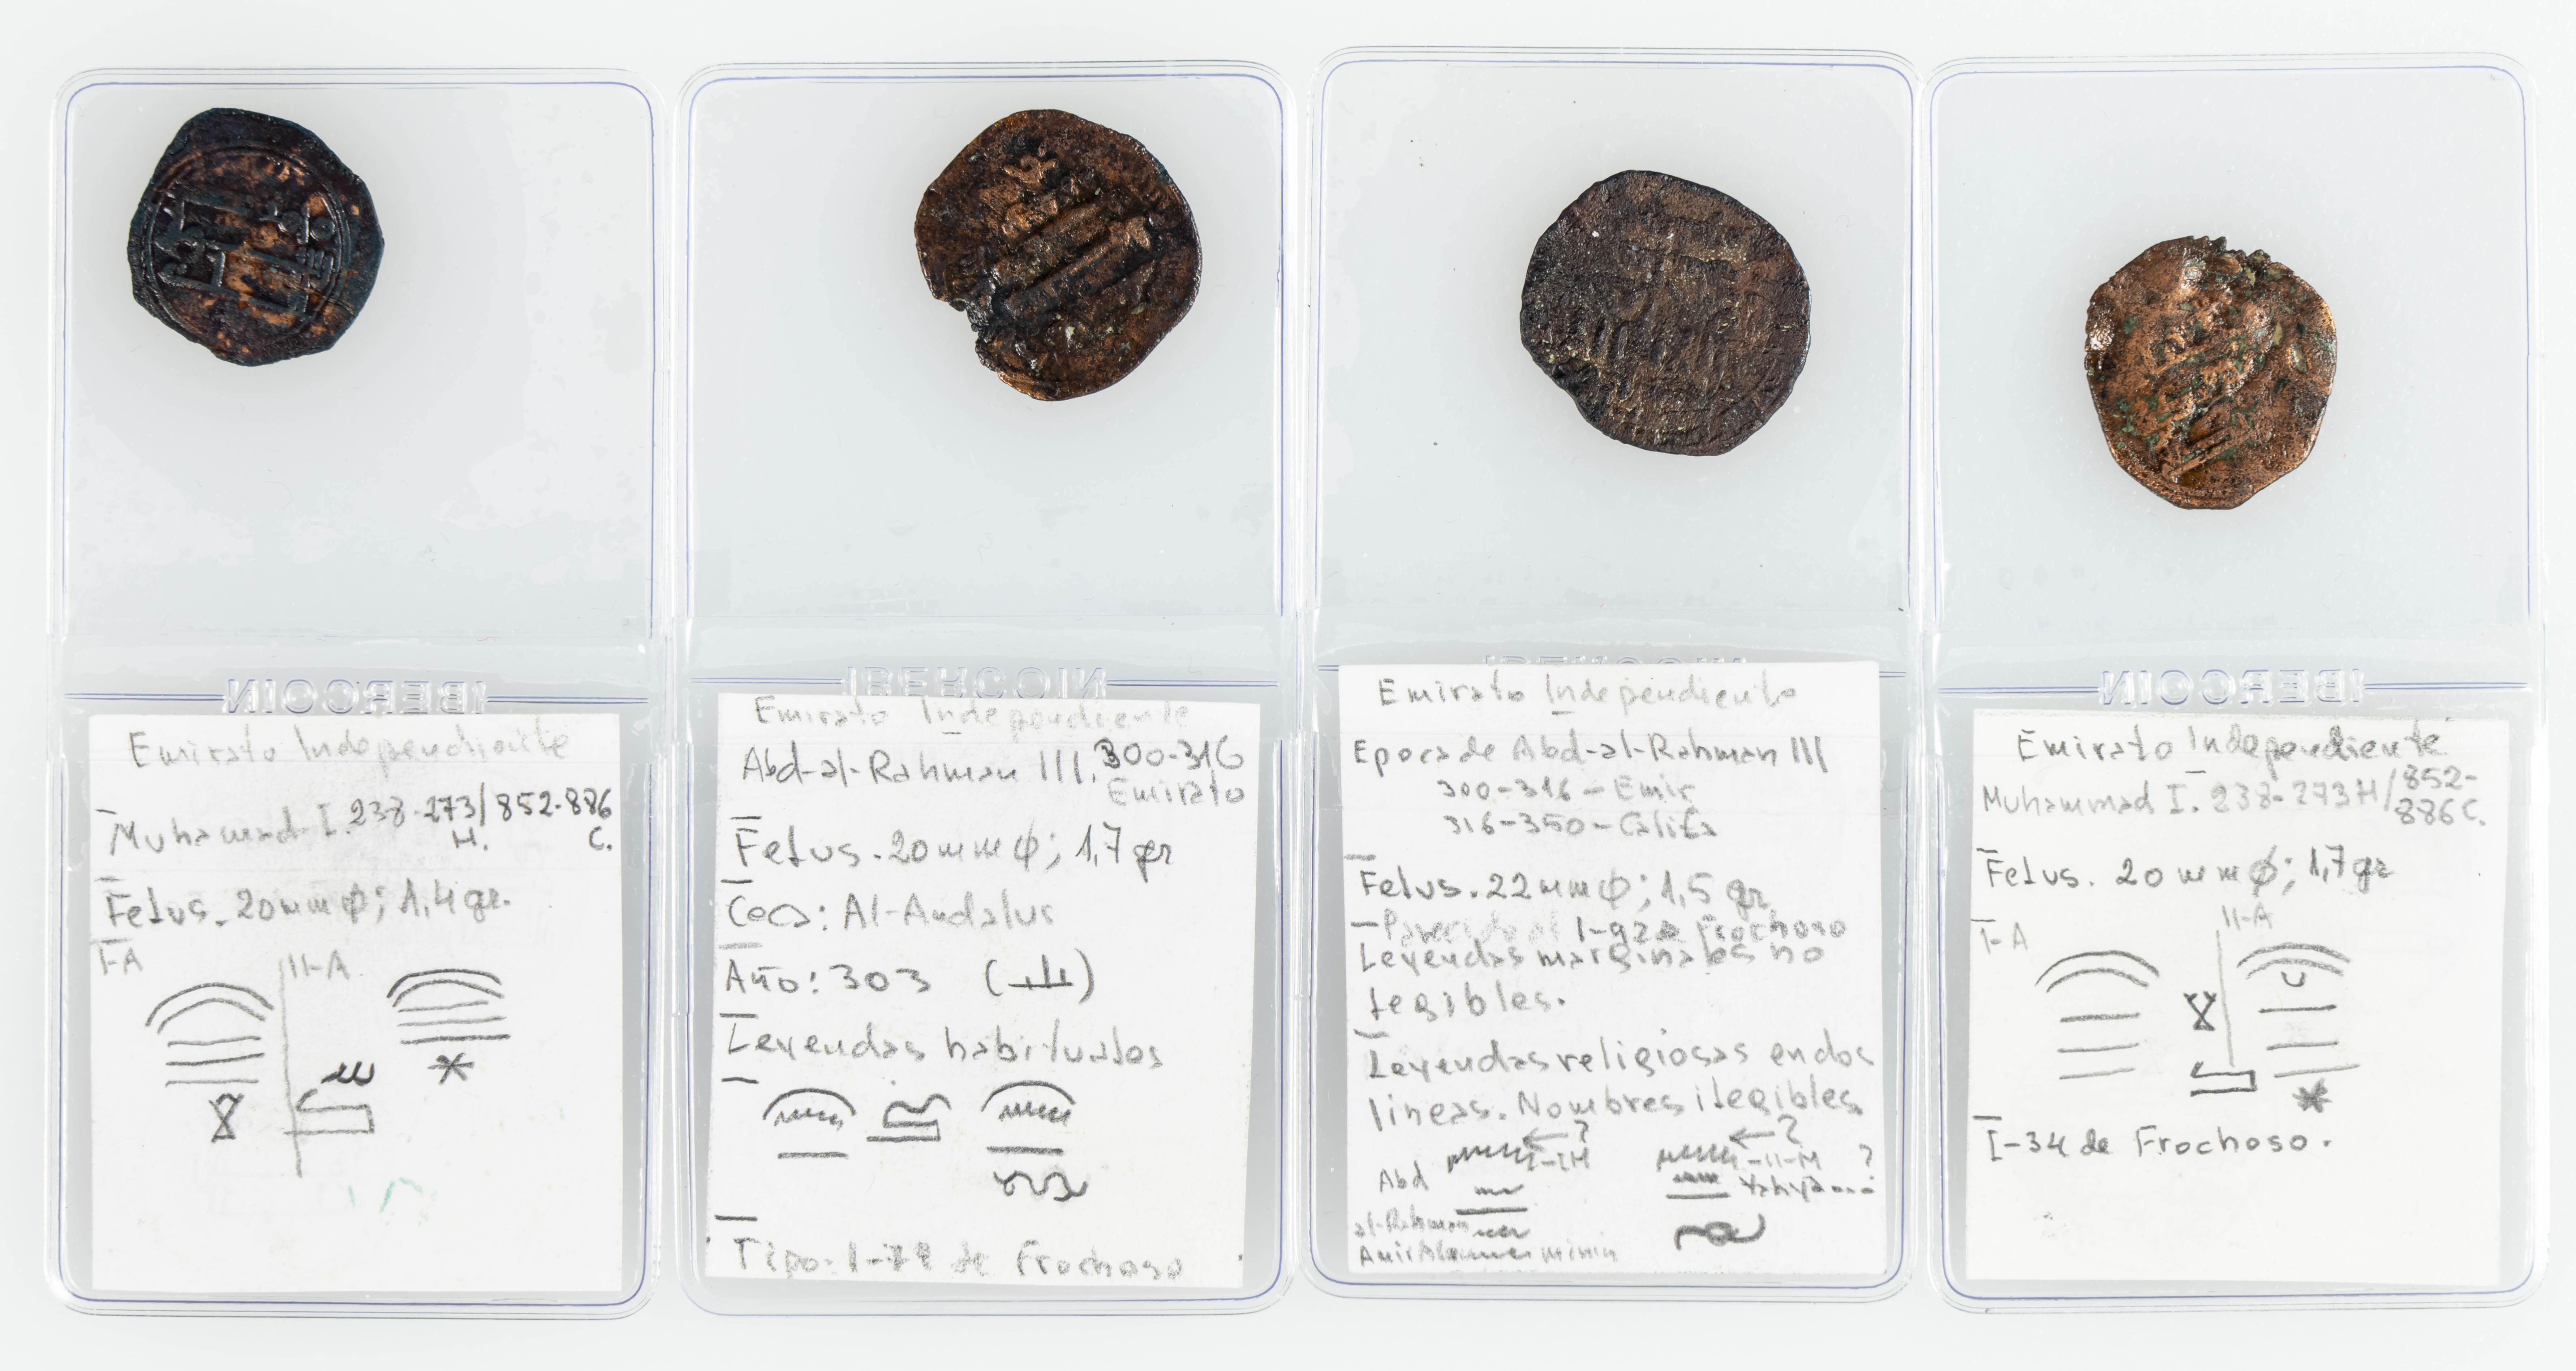 IBERCOIN
Emirato Independiente
Muhammad I. 238-273/852-886
H. C.
Felus. 20mm φ; 1,4 gr.
I-A II-A
IBERCOIN
Emirato Independiente
Abd-al-Rahman III. 300-316
Emirato
Felus. 20mm φ; 1,7 gr
Ceca: Al-Andalus
Año: 303
Leyendas habituales
Tipo: I-78 de Frochoso
Emirato Independiente
Epoca de Abd-al-Rahman III
300-316 - Emir
316-350 - Califa
Felus. 22mm φ; 1,5 gr
Frochoso
Leyendas marginales no
legibles.
Leyendas religiosas en dos
lineas. Nombres ilegibles
?
?
Abd
al-Rahman
IBERCOIN
Emirato Independiente
Muhammad I. 238-273H/852-
886C.
Felus. 20mm φ; 1,7gr
I-A II-A
I-34 de Frochoso.